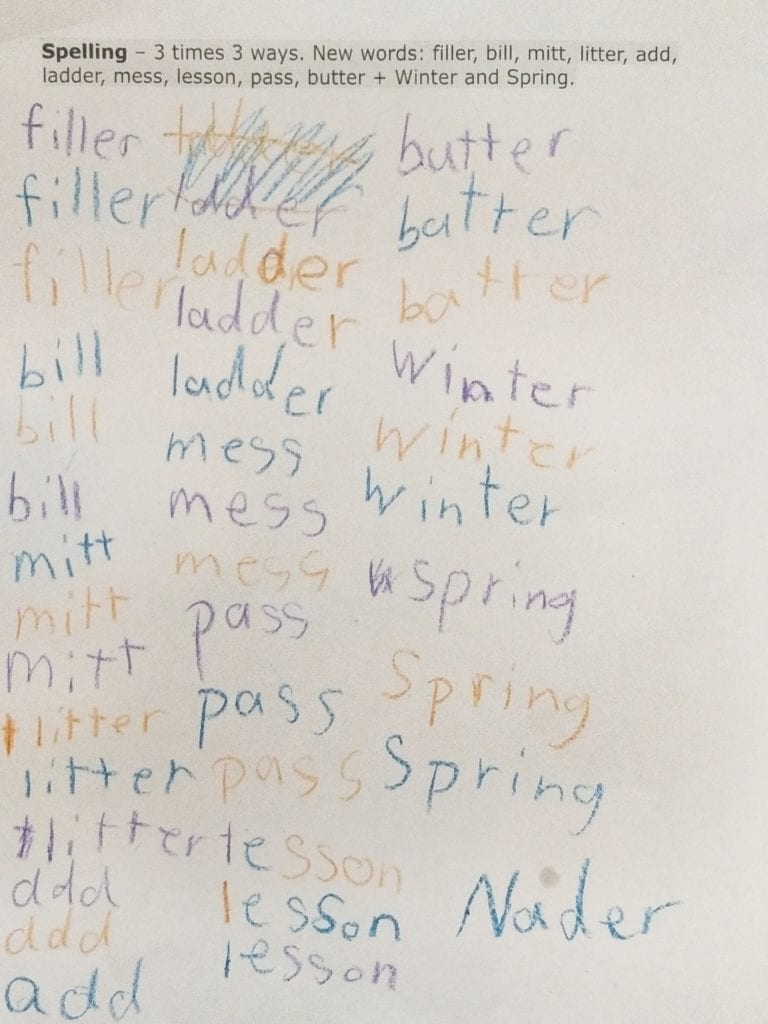 Spelling – 3 times 3 ways. New words: filler, bill, mitt, litter, add,
ladder, mess, lesson, pass, butter + Winter and Spring.
filler
filler
filler
bill
bill
bill
mitt
mitt
mitt
litter
litter
litter
add
add
add
ladder
ladder
ladder
ladder
mess
mess
mess
pass
pass
pass
lesson
lesson
lesson
butter
batter
batter
Winter
Winter
Winter
Spring
Spring
Spring
Nader